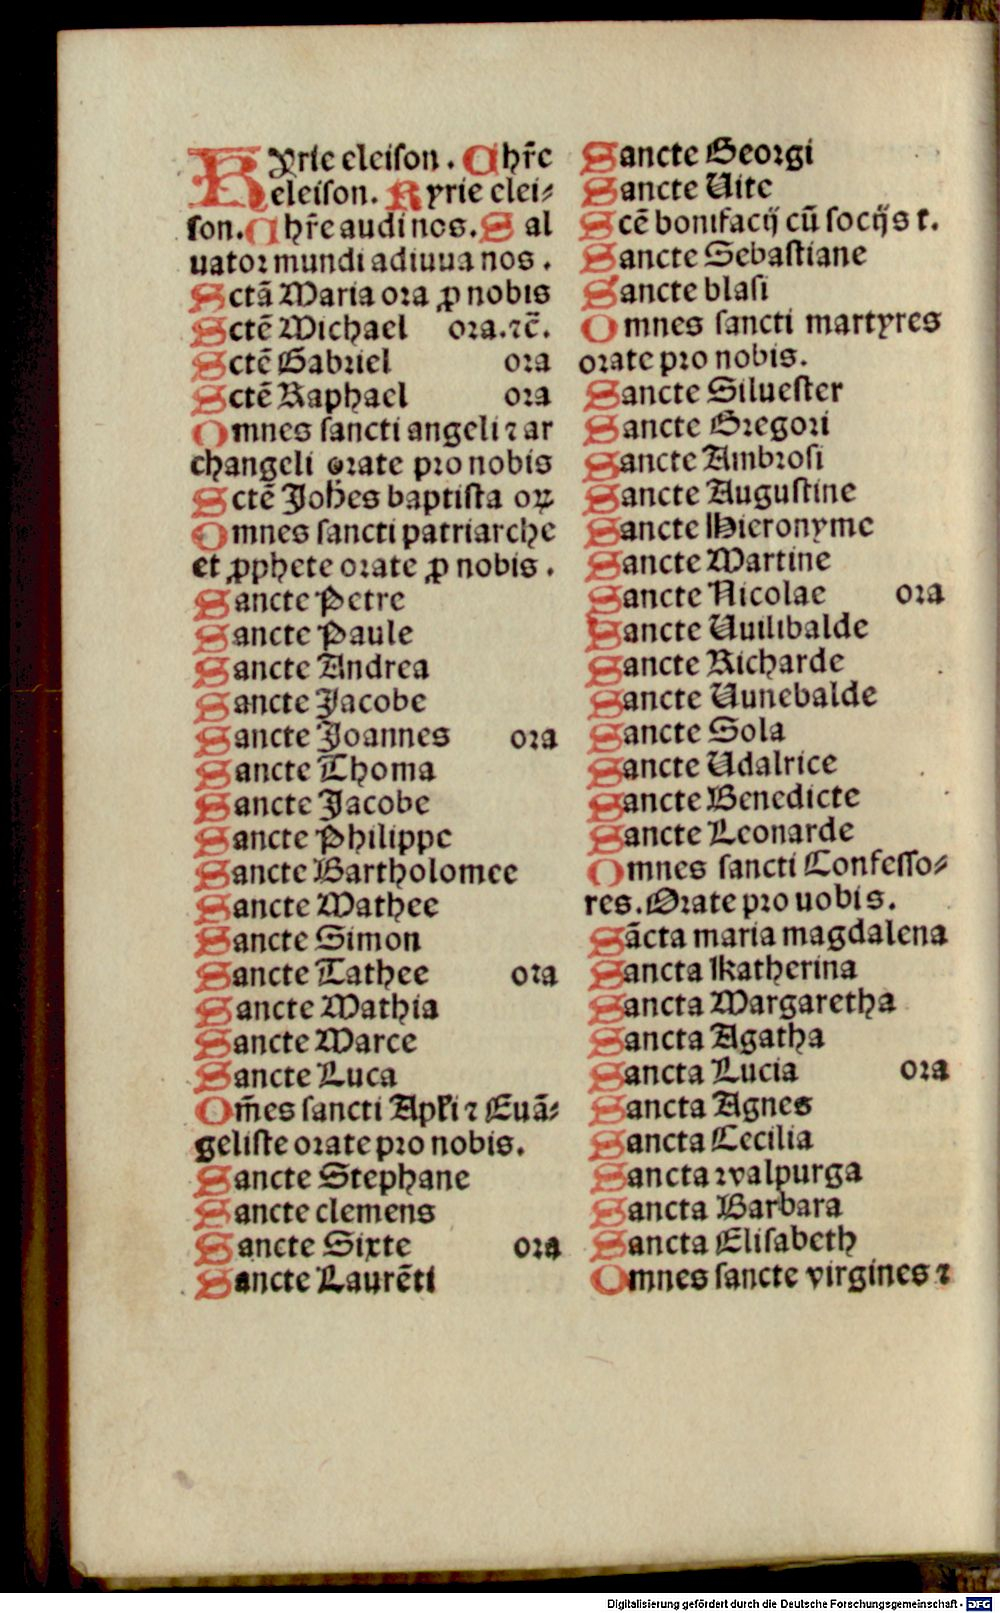 Kyrie eleiſon. Chr̄e
eleiſon. Kyrie elei⸗
ſon. Chr̄e audi nos. Sal
uatoꝛ mundi adiuua nos.
Sctā Maria oꝛa ꝓ nobis
Sctē Michael oꝛa.ꝛc̄.
Sctē Gabꝛiel oꝛa
Sctē Raphael oꝛa
Omnes ſancti angeli ꝛ ar
changeli oꝛate pꝛo nobis
Sctē Joh̄es baptiſta oꝝ
Omnes ſancti patriarche
et ꝓphete oꝛate ꝓ nobis.
Sancte Petre
Sancte Paule
Sancte Andrea
Sancte Jacobe
Sancte Joannes oꝛa
Sancte Thoma
Sancte Jacobe
Sancte Philippe
Sancte Bartholomee
Sancte Mathee
Sancte Simon
Sancte Tathee oꝛa
Sancte Mathia
Sancte Marce
Sancte Luca
Om̄es ſancti Apľi ꝛ Euā⸗
geliſte oꝛate pꝛo nobis.
Sancte Stephane
Sancte clemens
Sancte Sixte oꝛa
Sancte Laurēti
Sancte Geoꝛgi
Sancte Uite
Scē bonifacij cū ſocijs t.
Sancte Sebaſtiane
Sancte blaſi
Omnes ſancti martyres
oꝛate pꝛo nobis.
Sancte Silueſter
Sancte Gregoꝛi
Sancte Ambꝛoſi
Sancte Auguſtine
Sancte Hieronyme
Sancte Martine
Sancte Nicolae oꝛa
Sancte Uuilibalde
Sancte Richarde
Sancte Uunebalde
Sancte Sola
Sancte Udalrice
Sancte Benedicte
Sancte Leonarde
Omnes ſancti Confeſſo⸗
res. Oꝛate pꝛo uobis.
Sācta maria magdalena
Sancta Katherina
Sancta Margaretha
Sancta Agatha
Sancta Lucia oꝛa
Sancta Agnes
Sancta Cecilia
Sancta walpurga
Sancta Barbara
Sancta Eliſabeth
Omnes ſancte virgines ꝛ
Digitalisierung gefördert durch die Deutsche Forschungsgemeinschaft - DFG